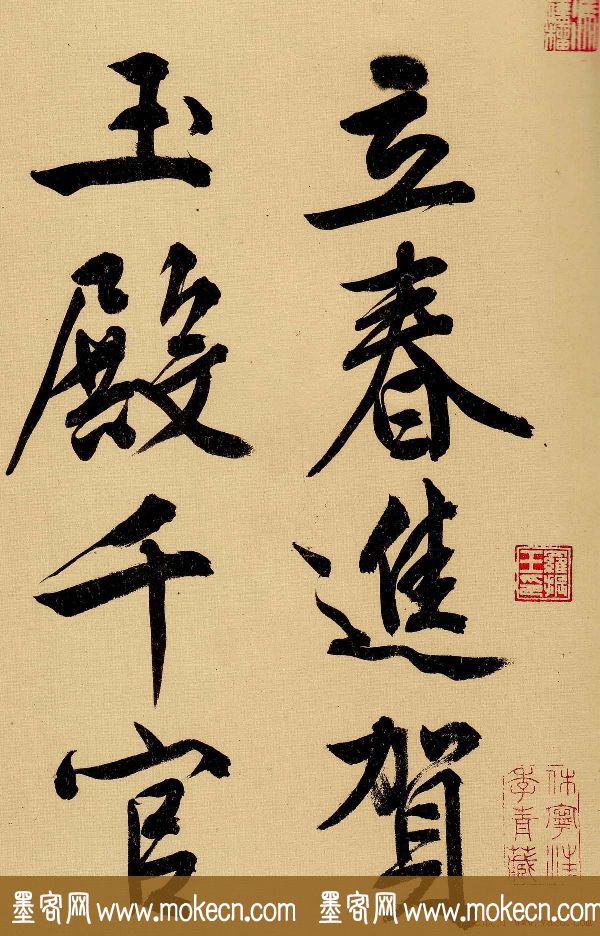 立春進賀
玉殿千官
休寧汪
季青藏
墨客网 www.mokecn.com 墨客网 www.mokecn.com